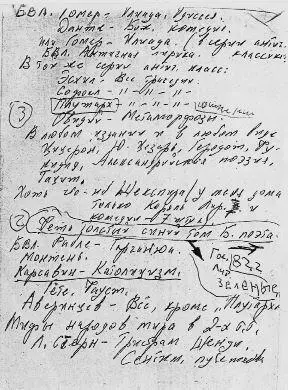 БВЛ. Гомер - Илиада, Одиссея.
Данте - Бож. комедия.
или Гомер - Илиада в серии антич.
БВЛ. Античная лирика. классики.
В той же серии антич. класс:
Эсхил - Все трагедии.
Софокл - " - " - " -
Плутарх " - " - " -
Овидий - Метаморфозы.
③
В любом издании и в любом виде
Цицерон, Ю. Цезарь, Геродот, Фу-
кидид, Александрийская поэзия,
Тацит,
Хоть что-ниб Шекспира (у меня дома
только Король Лир и
комедии - 7 штук)
② Фета толстый синий том Б. поэта.
БВЛ. Рабле - Гаргантюа.
Монтень.
Карсавин - Католицизм.
Гёте. Фауст.
Аверинцев - Всё, кроме "Плутарх
Мифы народов мира в 2-х т.т.
Л. Стерн - Тристрам Шенди,
Сентим. путеш
Гос
Лит
1822
зеленые